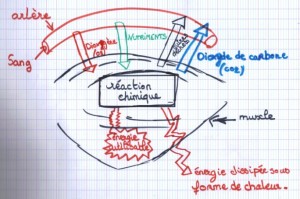 artère
Sang
Dioxygène
(O2)
NUTRIMENTS
Dioxyde de carbone
(CO2)
réaction
chimique
muscle
énergie
utilisable
énergie dissipée sous
forme de chaleur.